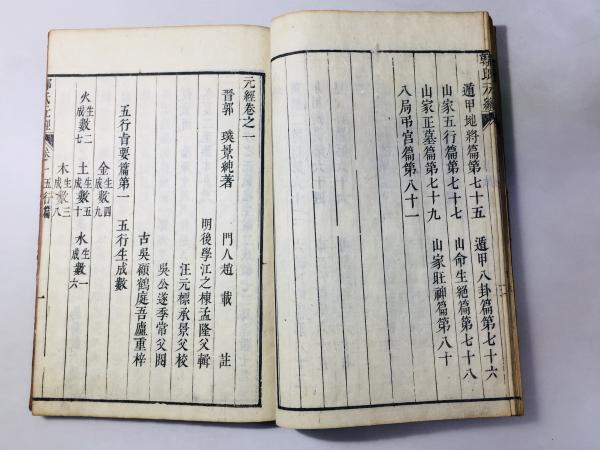 郭氏元經
遁甲地將篇第七十五　遁甲八卦篇第七十六
山家五行篇第七十七　山命生絕篇第七十八
山家正墓篇第七十九　山家旺神篇第八十
八局弔宮篇第八十一
元經卷之一
晉郭　璞景純著　門人趙　載　註
明後學江之棟孟隆父輯
汪元標承景父校
吳公遂季常父閱
古吳顧鶴庭吾廬重梓
五行旨要篇第一　五行生成數
金生數四成數九
火生數二成數七　土生數五成數十　水生數一成數六
木生數三成數八
郭氏元經　卷一　五行篇　一